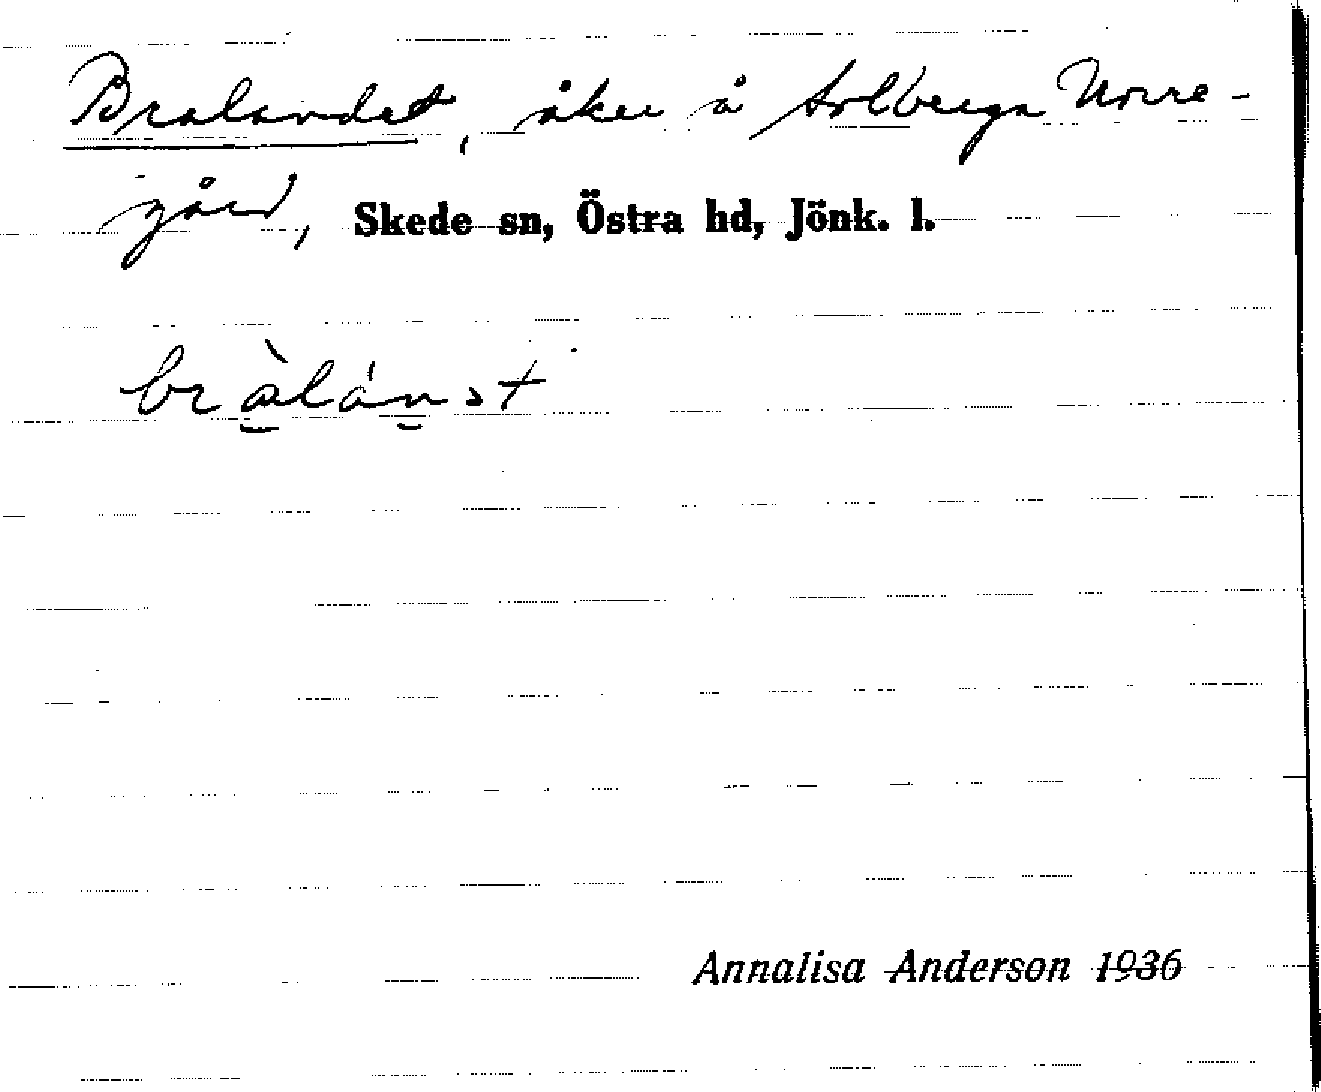 Bralandet, åker å Solberga Norre-
gård, Skede sn, Östra hd, Jönk. l.
bràlánət
Annalisa Anderson 1936